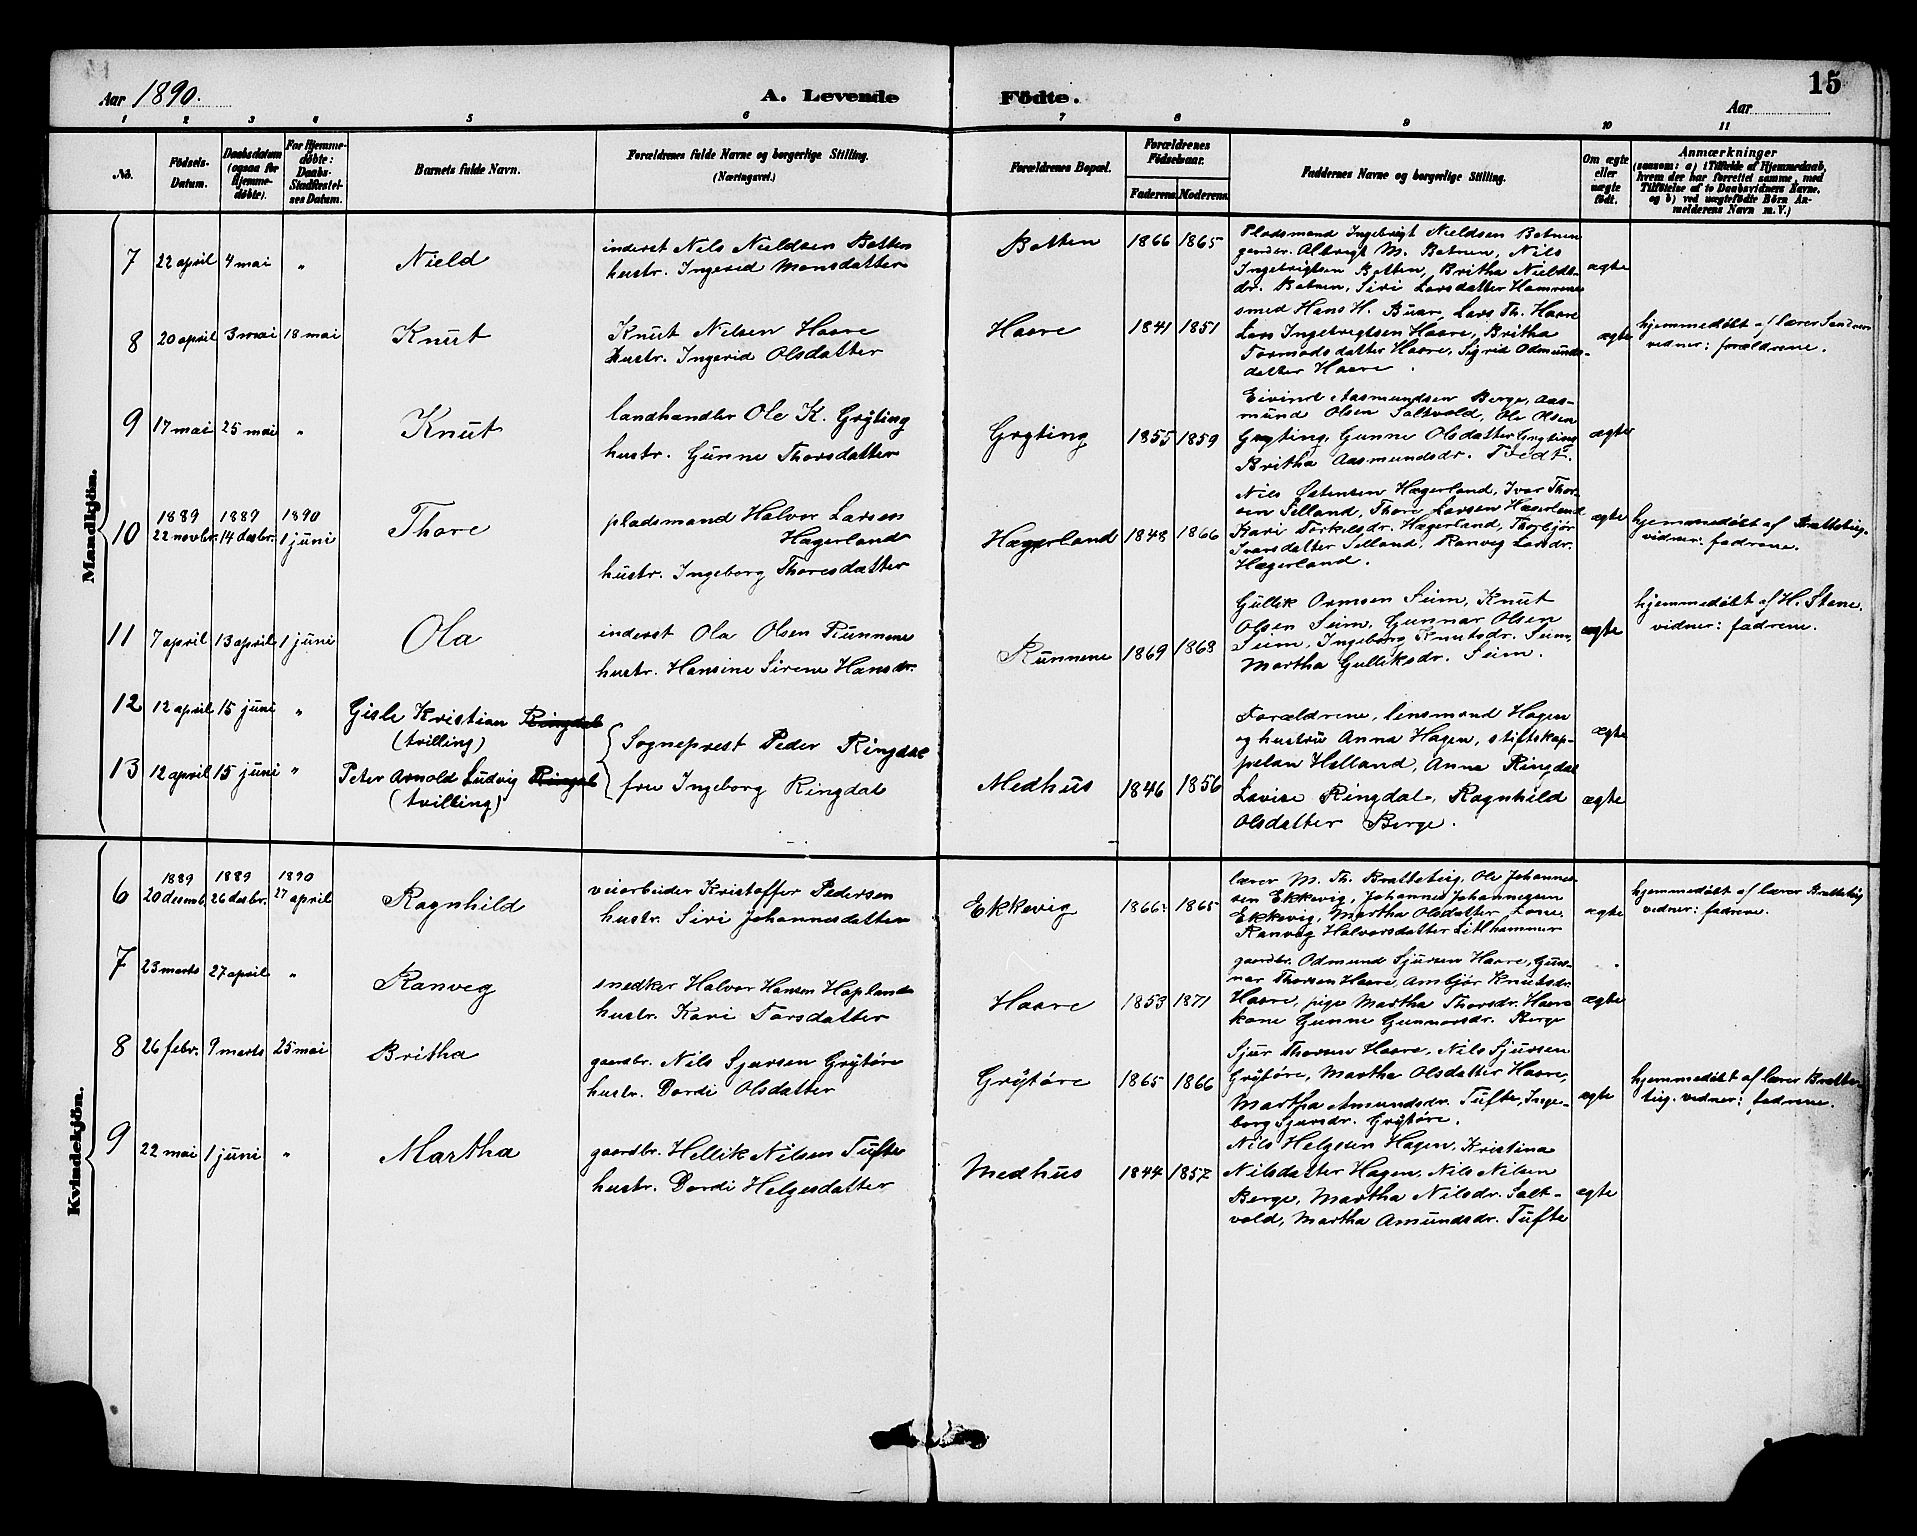 Aar 1890.
A. Levende Födte.
Aar
15
1 2 3 4 5 6 7 8 9 10 11
No.
Födsels-
Datum.
Daabsdatum
(ogsaa for
Hjemme-
döbte).
For Hjemme-
döbte:
Daabs-
Stadfæstel-
ses Datum.
Barnets fulde Navn.
Forældrenes fulde Navne og borgerlige Stilling.
(Næringsvei.)
Forældrenes Bopæl.
Forældrenes
Födselsaar.
Faderens Moderens
Faddernes Navne og borgerlige Stilling.
Om ægte
eller
uægte
født.
Anmærkninger
(saasom: a) i Tilfælde af Hjemmedaab,
hvem der har forrettet samme, med
Tilföielse af to Daabsvidners Navne.
og b) ved uægtefødte Börn An-
melderens Navn m. V.)
Mandkjön.
7 22 april 4 mai " Nield
inderst Nils Nieldsen Botten
hustr. Ingerid Monsdatter
Botten 1866 1865
Pladsmand Ingebrigt Nieldsen Botnen
gaardbr. Albrigt M. Botnen, Nils
Ingebrigtsen Botten, Britha Nields-
dr. Botnen, Siri Larsdatter Hamrene
ægte
8 20 april 3 mai 18 mai Knut
Knut Nilsen Haare
hustr. Ingerid Olsdatter
Haare 1841 1851
smed Hans H. Buar, Lars Th. Haare
Lars Ingebrigtsen Haare, Britha
Tormodsdatter Haare, Sigrid Odmunds-
datter Haare.
ægte
hjemmedøbt af lærer Sandven
vidner: forældrene.
9 17 mai 25 mai " Knut
landhandler Ole K. Grÿting
hustr. Gunne Thorsdatter
Grÿting 1855 1859
Eivind Aasmundsen Berge, Aas-
mund Olsen Saltvold, Ole Olsen
Grÿting, Gunne Olsdatter Grÿting
Britha Aasmundsdr. Födt.
ægte
10 1889 22 novbr. 1889 14 desbr. 1890 1 juni Thore
pladsmand Halvor Larsen
Hægerland
hustr. Ingeborg Thoresdatter
Hægerland 1848 1866
Nils Østensen Hægerland, Ivar Thor-
sen Selland, Thore Larsen Hægerland
Kari Torkelsdr. Hægerland, Thorbjør
Ivarsdatter Selland, Ranveg Larsdr.
Hægerland.
ægte
hjemmedøbt af Bratteteig.
vidner: fadrene.
11 7 april 13 april 1 juni Ola
inderst Ola Olsen Runnene
hustr. Hansine Sirene Hansdr.
Runnene 1869 1868
Gullik Ormsen Seim, Knut
Olsen Seim, Gunnar Olsen
Seim, Ingeborg Knutsdr. Seim,
Martha Gulliksdr. Seim.
ægte
hjemmedøbt af H. Stene.
vidner: fadrene.
12 12 april 15 juni " Gisle Kristian Ringdal
(tvilling)
13 12 april 15 juni " Peter Arnold Ludvig Ringdal
(tvilling)
Sogneprest Peder Ringdal
fru Ingeborg Ringdal
Medhus 1846 1856
Forældrene, lensmand Hagen
og hustru Anna Hagen, stiftskap-
pelan Helland, Anne Ringdal
Lovise Ringdal, Ragnhild
Olsdatter Berge.
ægte
ægte
Kvindekjön.
6 1889 20 desemb. 1889 26 desbr. 1890 27 april Ragnhild
veiarbeider Kristoffer Pedersen
hustr. Siri Johannesdatter
Ekkevig 1866 1865
lærer M. Th. Bratteteig, Ole Johannes-
sen Ekkevig, Johannes Johannessen
Ekkevig, Martha Olsdatter Lone
Ranveg Halvorsdatter Litlhammer
ægte
hjemmedøbt af lærer Bratteteig
vidner: fadrene.
7 23 marts 27 april " Ranveg
snedker Halvor Hansen Hopland
hustr. Kari Torsdatter
Haare 1853 1871
gaardbr. Odmund Sjursen Haare, Gun-
nar Thorsen Haare, Ambjør Knutsdr.
Haare, pige Martha Thorsdr. Haare
kone Gunne Gunnarsdr. Berge
ægte
8 26 febr. 9 marts 25 mai Britha
gaardbr. Nils Sjursen Grÿtøre
hustr. Dordi Olsdatter
Grÿtøre 1865 1866
Sjur Thorsen Haare, Nils Sjursen
Grÿtøre, Martha Olsdatter Haare,
Martha Amundsdr. Tufte, Inge-
borg Sjursdr. Grÿtøre.
ægte
hjemmedøbt af lærer Bratte-
teig. vidner: fadrene.
9 22 mai 1 juni " Martha
gaardbr. Hellik Nilsen Tufte
hustr. Dordi Helgesdatter
Medhus 1844 1857
Nils Helgesen Hagen, Kristina
Nilsdatter Hagen, Nils Nilsen
Berge, Martha Nilsdr. Salt-
vold, Martha Amundsdr. Tufte
ægte